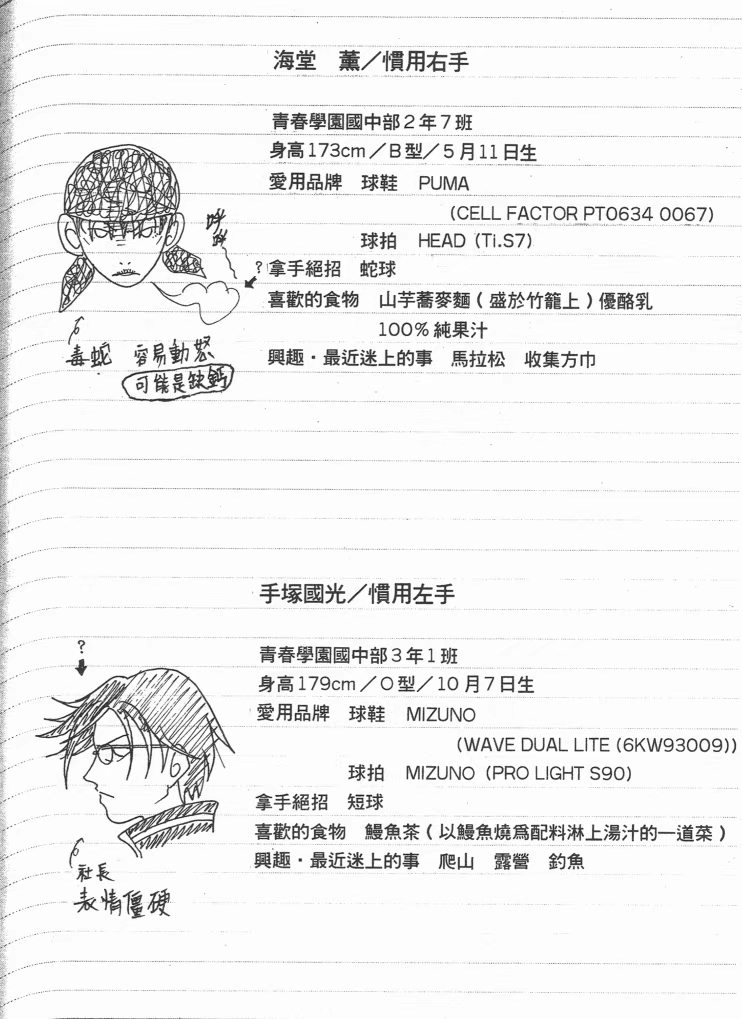 海堂　薰／慣用右手
青春學園國中部2年7班
身高173cm／B型／5月11日生
愛用品牌　球鞋　PUMA
(CELL FACTOR PT0634 0067)
球拍　HEAD (Ti.S7)
拿手絕招　蛇球
喜歡的食物　山芋蕎麥麵(盛於竹籠上)優酪乳
100%純果汁
興趣・最近迷上的事　馬拉松　收集方巾
?
毒蛇　容易動怒
可能是缺鈣
手塚國光／慣用左手
青春學園國中部3年1班
身高179cm／O型／10月7日生
愛用品牌　球鞋　MIZUNO
(WAVE DUAL LITE (6KW93009))
球拍　MIZUNO (PRO LIGHT S90)
拿手絕招　短球
喜歡的食物　鰻魚茶(以鰻魚燒爲配料淋上湯汁的一道菜)
興趣・最近迷上的事　爬山　露營　釣魚
?
社長
表情僵硬